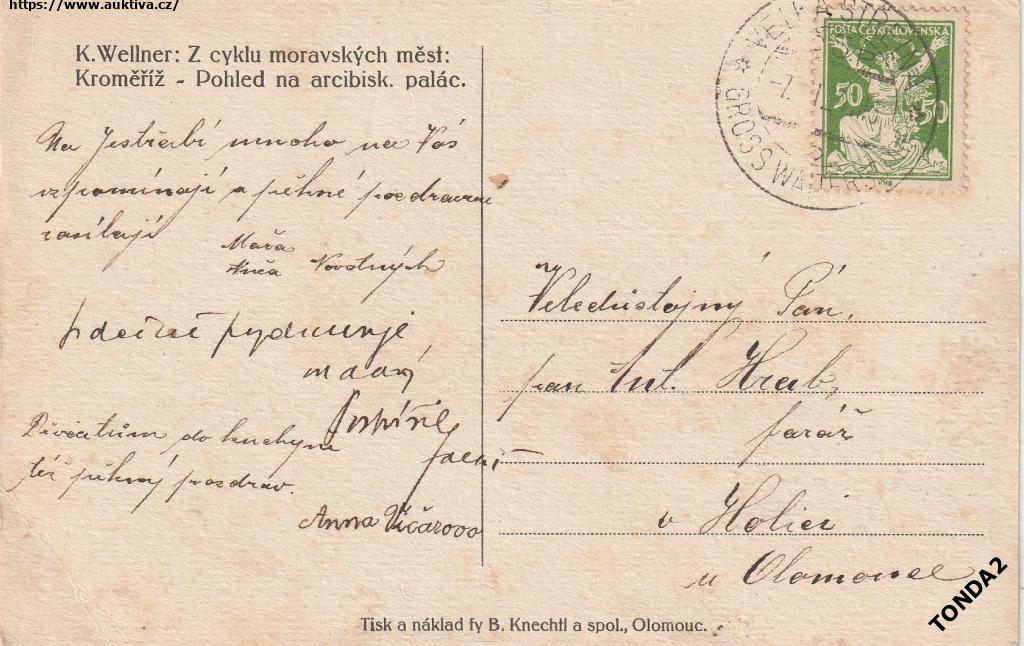 https://www.auktiva.cz/
K. Wellner: Z cyklu moravských měst:
Kroměříž - Pohled na arcibisk. palác.
POŠTA ČESKOSLOVENSKÁ
50 50
VELKÁ STŘ
GROSS WA
Na Jestřabí mnoho na Vás
vzpomínají a pěkné pozdravení
zasílají
Máňa
Novotných
srdečně
mladý
Děvčatům do kuchyně
též pěkný pozdrav.
Anna Vičarova
Veledůstojný Pán,
pan Ant. Hrab,
farář
v Holici
u Olomouce
Tisk a náklad fy B. Knechtl a spol., Olomouc.
TONDA2